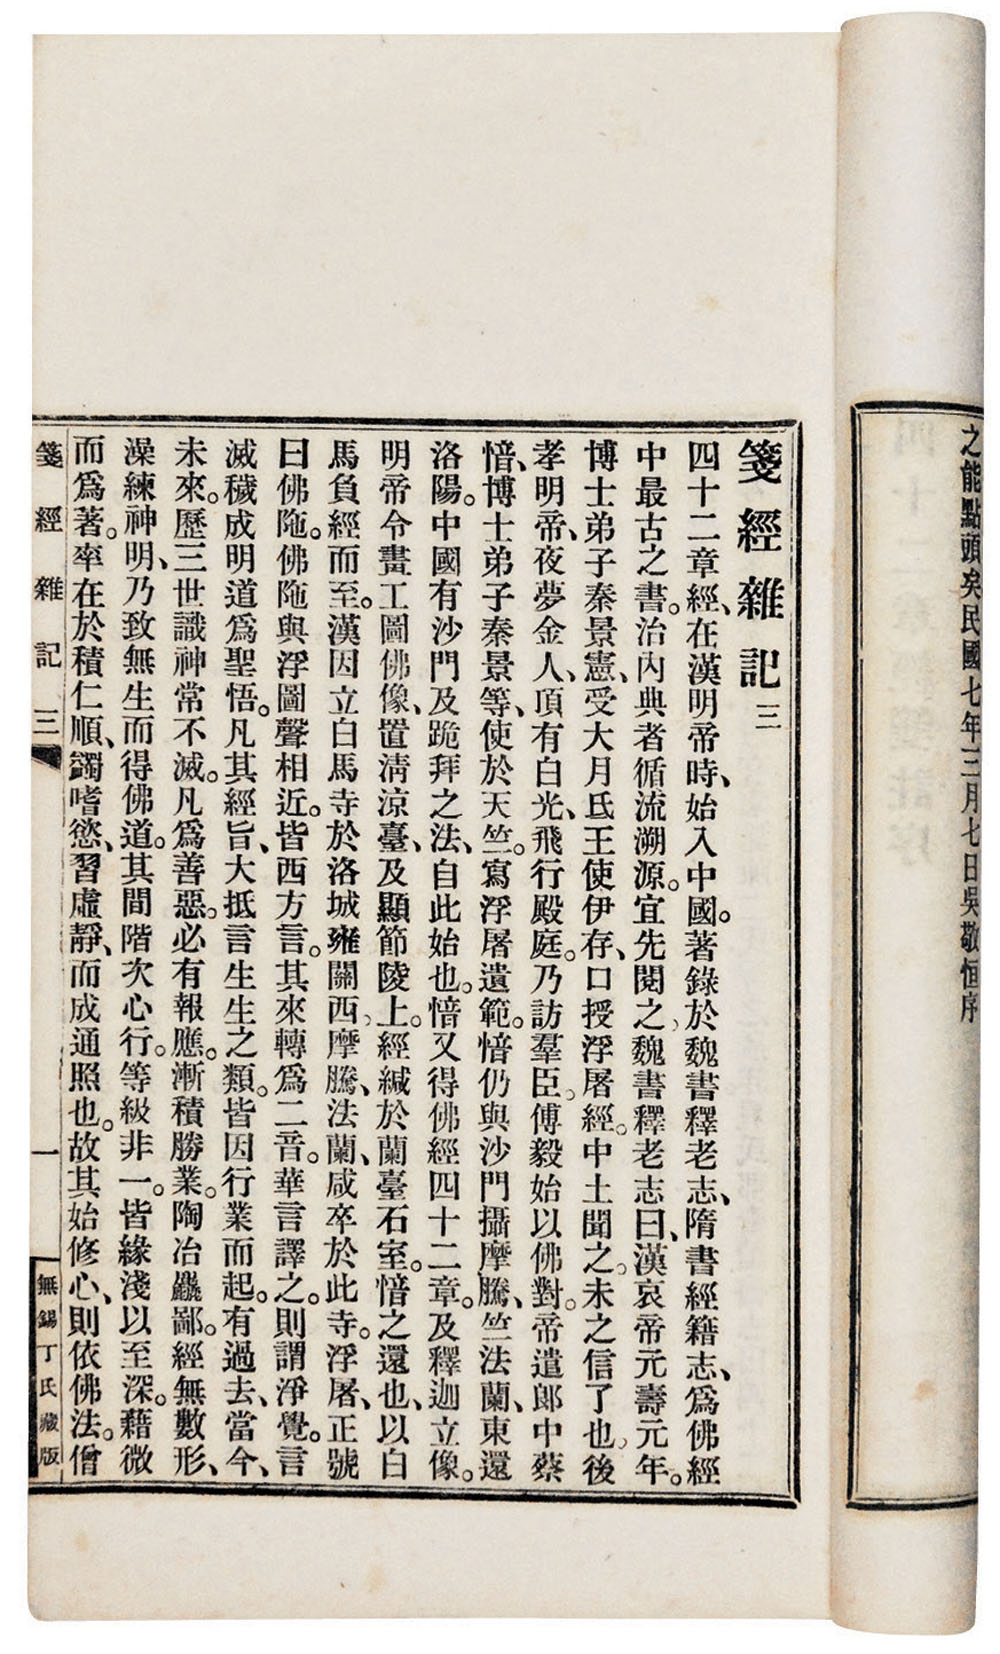 之能點頭矣民國七年三月七日吳敬恒序
箋經雜記三
四十二章經、在漢明帝時、始入中國。著錄於魏書釋老志、隋書經籍志、爲佛經
中最古之書。治內典者循流溯源。宜先閱之、魏書釋老志曰、漢哀帝元壽元年。
博士弟子秦景憲、受大月氐王使伊存、口授浮屠經。中土聞之。未之信了也。後
孝明帝、夜夢金人、項有白光、飛行殿庭。乃訪羣臣。傅毅始以佛對。帝遣郎中蔡
愔、博士弟子秦景等、使於天竺。寫浮屠遺範。愔仍與沙門攝摩騰、竺法蘭、東還
洛陽。中國有沙門及跪拜之法、自此始也。愔又得佛經四十二章。及釋迦立像。
明帝令畫工圖佛像、置淸涼臺、及顯節陵上。經緘於蘭臺石室。愔之還也、以白
馬負經而至。漢因立白馬寺於洛城雍關西、摩騰、法蘭、咸卒於此寺。浮屠、正號
曰佛陁。佛陁與浮圖聲相近。皆西方言。其來轉爲二音。華言譯之。則謂淨覺。言
滅穢成明道爲聖悟。凡其經旨、大抵言生生之類。皆因行業而起。有過去、當今、
未來。歷三世識神常不滅。凡爲善惡。必有報應。漸積勝業。陶冶麤鄙。經無數形、
澡練神明、乃致無生而得佛道。其間階次心行。等級非一。皆緣淺以至深。藉微
而爲著。率在於積仁順、蠲嗜慾、習虛靜、而成通照也。故其始修心、則依佛法。僧
箋經雜記三
一
無錫丁氏藏版